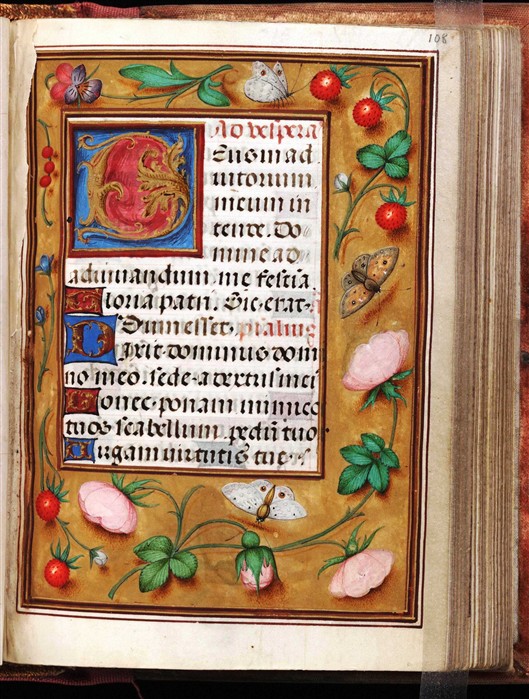 108
Ad vespera
Deus in ad
iutorium
meum in
tende. Do
mine ad
adiuuandum me festia
Gloria patri. Sic erat.
Dum esset. psalmus
Dixit dominus dom
no meo. sede a dextris mei
Donec ponam inimico
tuos scabellum. pedu tuo
Uirgam uirtutis tue